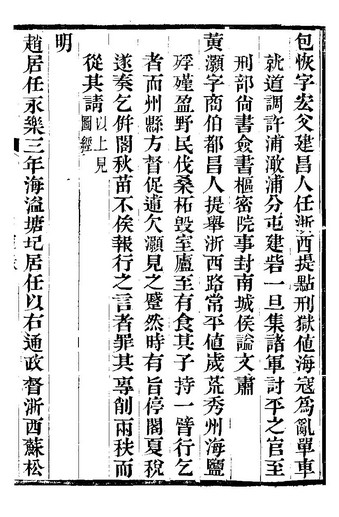 包恢字宏父建昌人任浙西提點刑獄値海寇爲亂單車
就道調許浦澉浦分屯建砦一旦集諸軍討平之官至
刑部尚書僉書樞密院事封南城侯謚文肅
黄灝字商伯都昌人提舉浙西路常平値歲荒秀州海鹽
殍殣盈野民伐桑柘毁室廬至有食其子持一臂行乞
者而州縣方督促逋欠灝見之蹙然時有旨停閣夏稅
遂奏乞併閣秋苗不俟報行之言者罪其專削兩秩而
從其請以上見圖經
明
趙居任永樂三年海溢塘圮居任以右通政督浙西蘇松